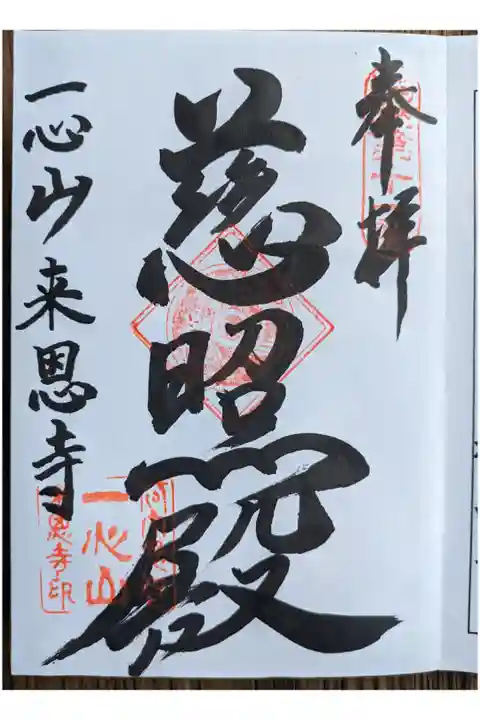 奉拝
慈照殿
一心山来恩寺
一心山
来恩寺印